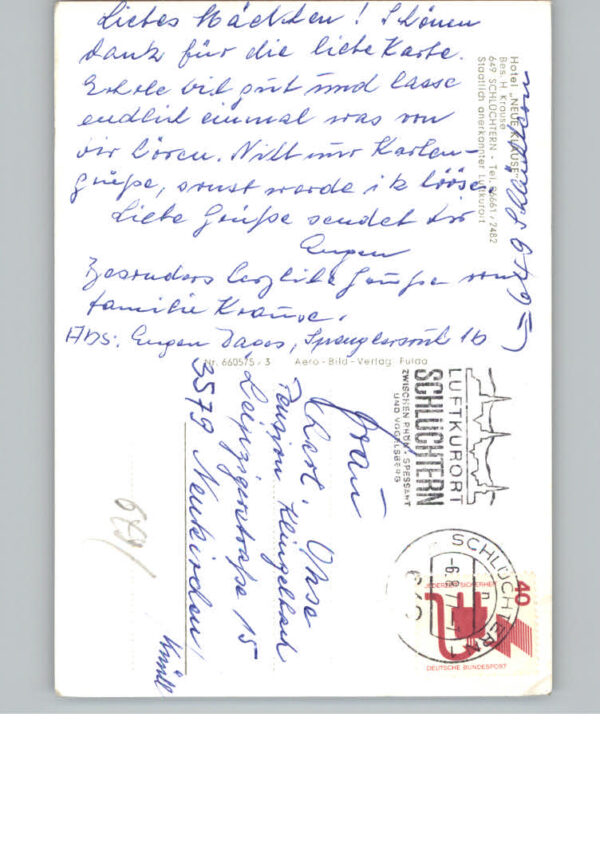 Liebes Mäckchen! Schönen
Dank für die liebe Karte.
Erhole dich gut und lasse
endlich einmal was von
dir hören. Nicht nur Karten-
grüße, sonst werde ich böse.
Liebe Grüße sendet dir
Eugen
Besonders herzliche Grüße von
Familie Krause.
Abs: Eugen 1b
649 Schlüchtern
Hotel „NEUE KLAUSE"
Bes. H. Krause
649 SCHLÜCHTERN - Tel. 06661/2482
Staatlich anerkannter Luftkurort
Nr. 660575 - 3 Aero - Bild - Verlag Fulda
LUFTKURORT
SCHLÜCHTERN
ZWISCHEN RHÖN, SPESSART
UND VOGELSBERG
Frau
Charl. Ohse
Pension Klingelbach
Leipzigerstraße 15
3579 Neukirchen
Knüll
SCHLÜCHTERN
40
JEDERZEIT SICHERHEIT
DEUTSCHE BUNDESPOST